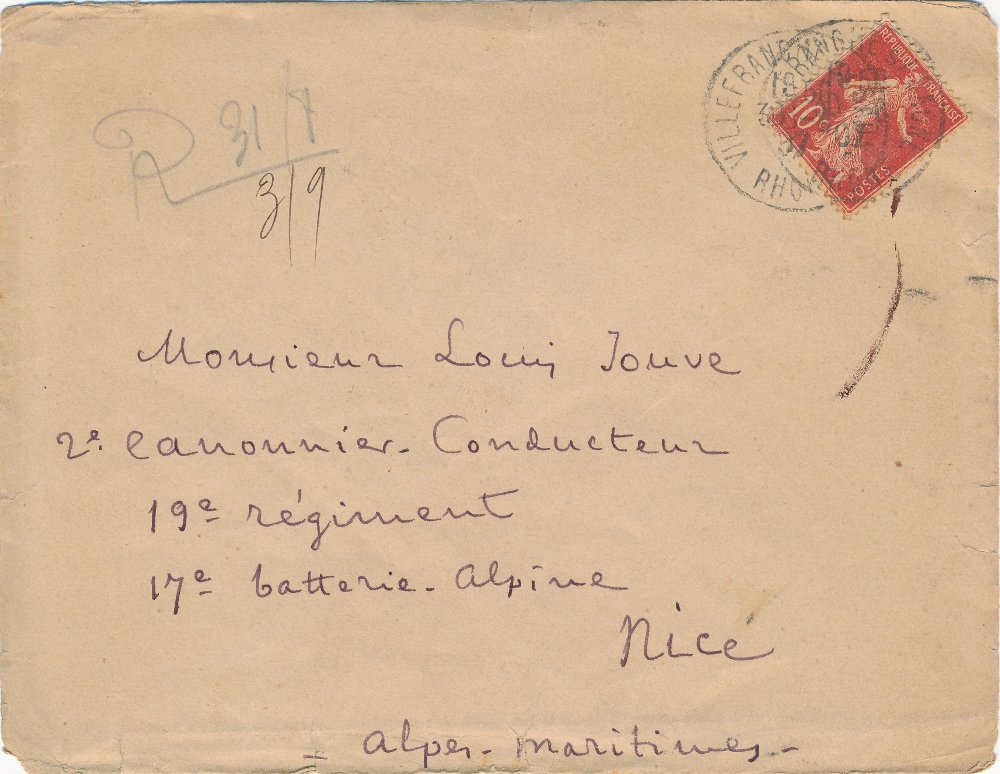 R 31/8
3/9
VILLEFRANCHE
RHONE
REPUBLIQUE FRANCAISE
10c
POSTES
Monsieur Louis Jouve
2e Canonnier - Conducteur
19e régiment
17e batterie - Alpine
Nice
- Alpes - Maritimes -